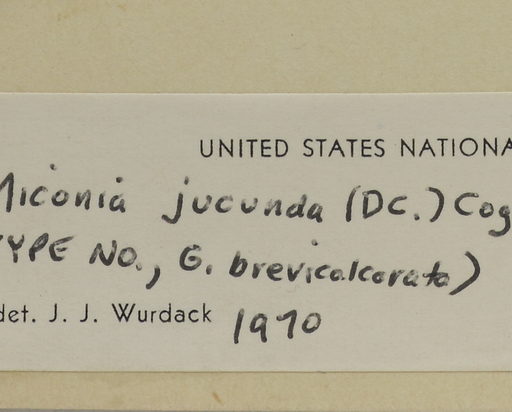 UNITED STATES NATIONA
Miconia jucunda (DC.) Cog
TYPE NO., G. brevicalcarata)
det. J. J. Wurdack 1970